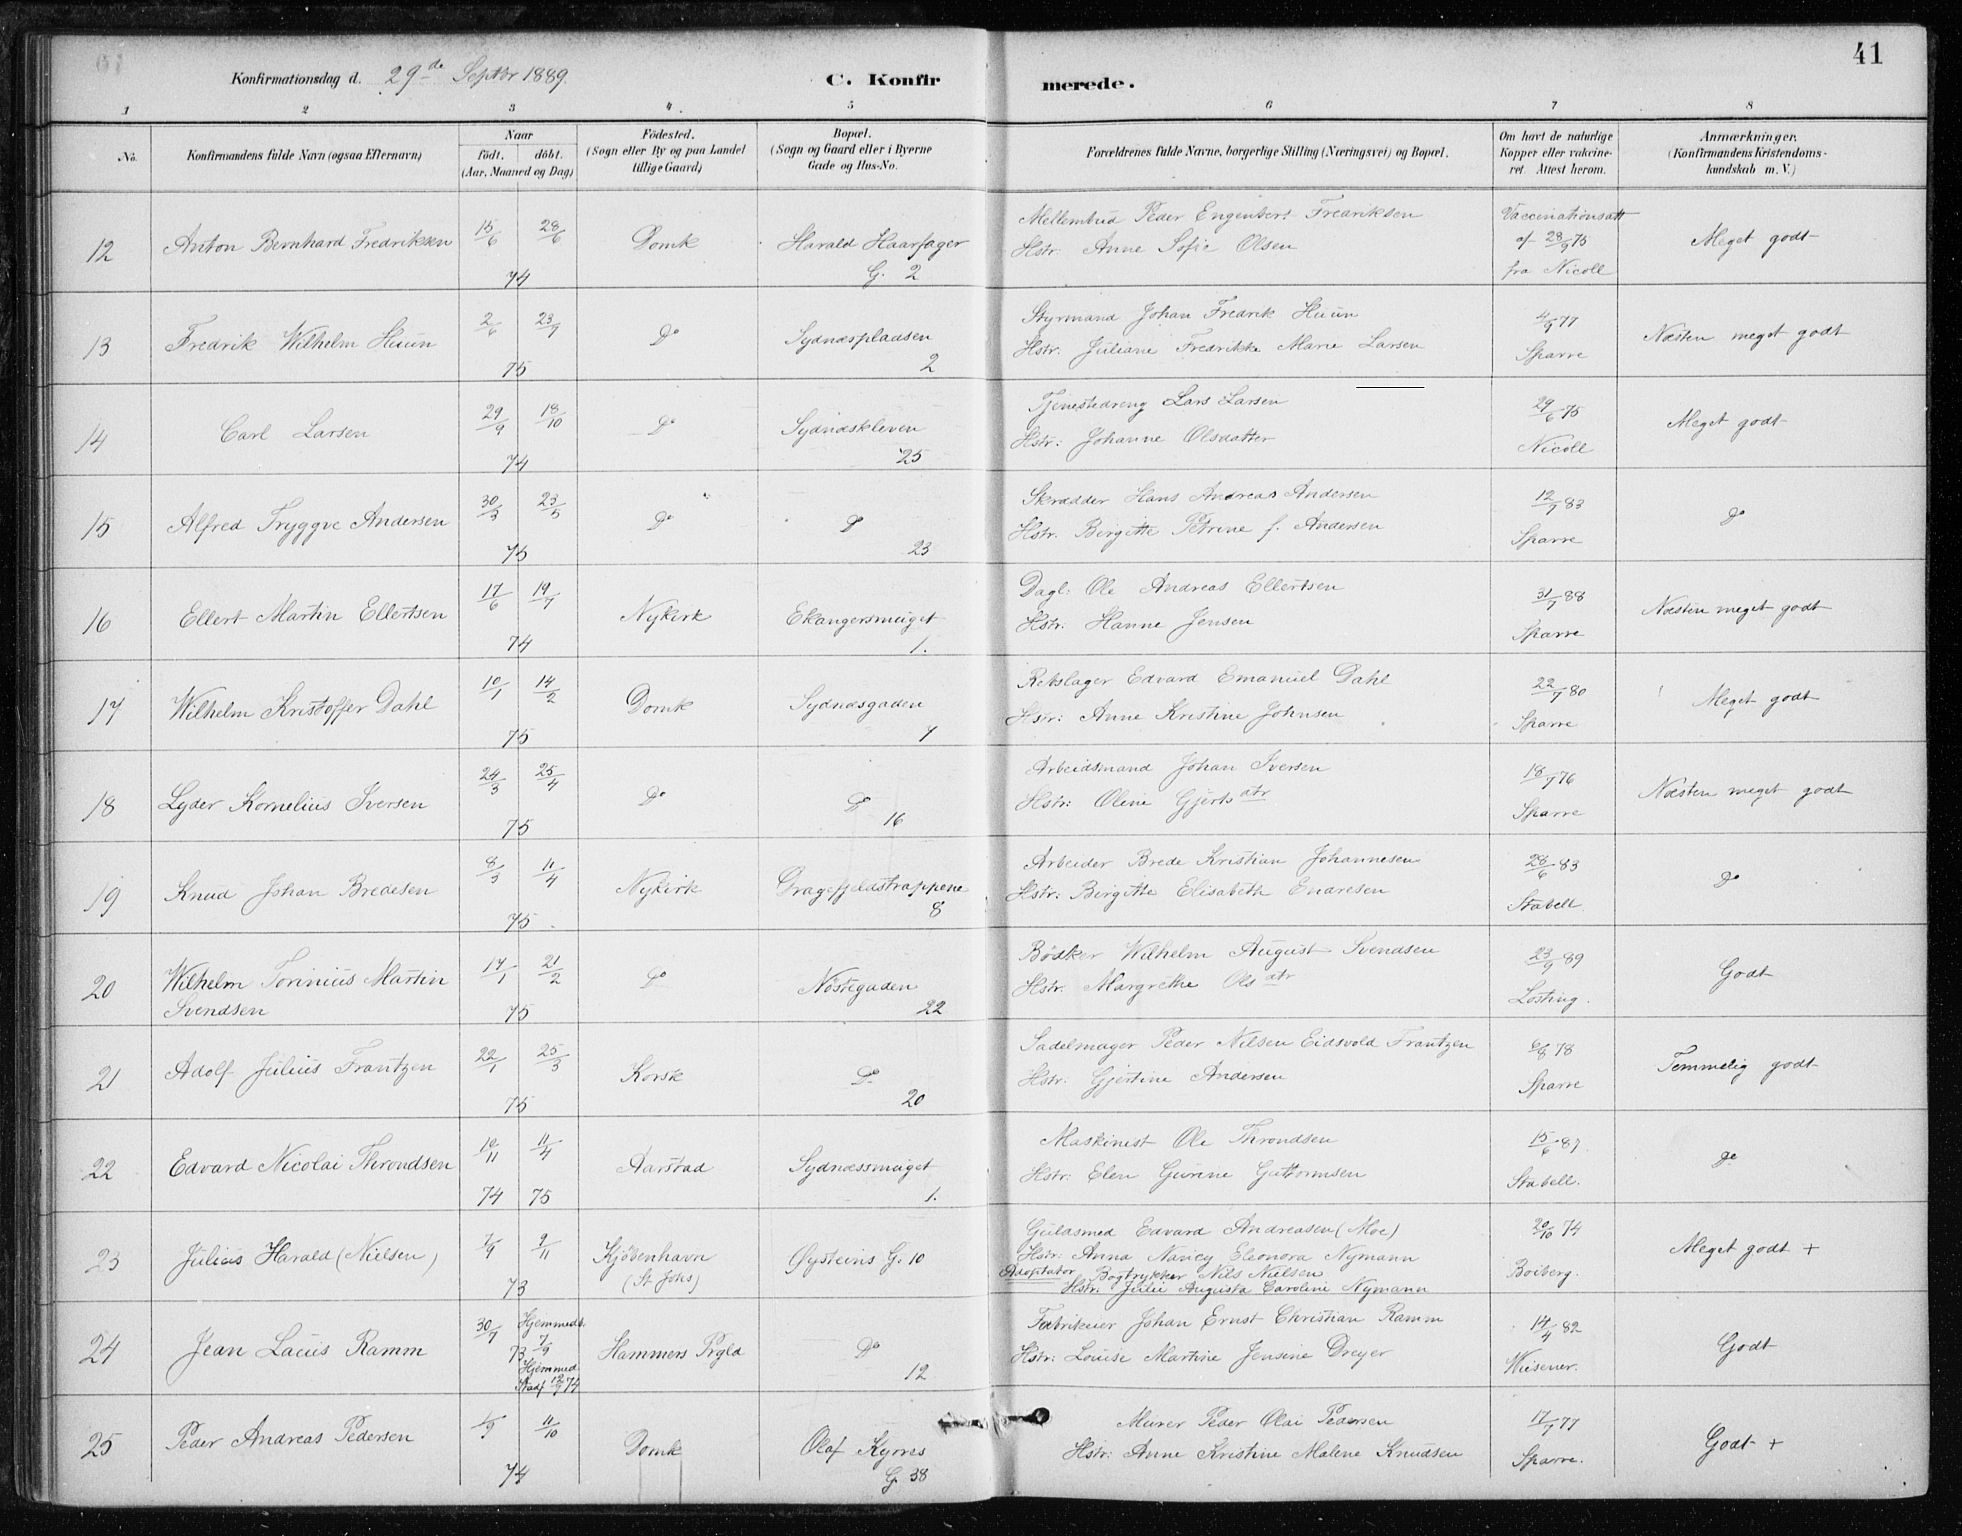 41
Konfirmationsdag d. 29de Septbr 1889.
C. Konfirmerede.
1 2 3 4 5 6 7 8
No.
Konfirmandens fulde Navn (ogsaa Efternavn)
Naar
født. døbt.
(Aar, Maaned og Dag)
Födested.
(Sogn eller By og paa Landet
tillige Gaard)
Bopæl.
(Sogn og Gaard eller i Byerne
Gade og Hus-No.
Forældrenes fulde Navne, borgerlige Stilling (Næringsvei) og Bopæl.
Om havt de naturlige
Kopper eller vakcine-
ret. Attest herom.
Anmærkninger.
(Konfirmandens Kristendoms-
kundskab m. V.)
12 Anton Bernhard Fredriksen 15/6 28/6 74 Domk Harald Haarfager
G. 2
Mellembud Peder Engenbert Fredriksen
Hstr: Anne Sofie Olsen
Vaccinationsatt
af 28/9 75
fra Nicoll
Meget godt
13 Fredrik Wilhelm Huun 2/6 23/7 75 Do Sydnæspladsen
2
Styrmand Johan Fredrik Huun
Hstr: Juliane Fredrikke Marie Larsen
4/9 77
Sparre
Næsten meget godt
14 Carl Larsen 29/9 18/10 74 Do Sydnæskleven
25
Tjenestedreng Lars Larsen
Hstr: Johanne Olsdatter
29/6 75
Nicoll
Meget godt
15 Alfred Tryggve Andersen 30/3 23/5 75 Do Do
23
Skrædder Hans Andreas Andersen
Hstr. Birgitte Petrine f. Andersen
12/7 83
Sparre
Do
16 Ellert Martin Ellertsen 17/6 19/7 74 Nykirk Ekangersmuget
1.
Dagl: Ole Andreas Ellertsen
Hstr: Hanne Jensen
31/7 88
Sparre
Næsten meget godt
17 Wilhelm Kristoffer Dahl 10/1 14/2 75 Domk Sydnæsgaden
7
Rebslager Edvard Emanuel Dahl
Hstr: Anne Kristine Johnsen
22/7 80
Sparre
Meget godt
18 Lyder Kornelius Iversen 24/3 25/4 75 Do Do
16
Arbeidsmand Johan Iversen
Hstr: Oline Gjertsdtr
18/7 76
Sparre
Næsten meget godt
19 Knud Johan Bredesen 8/3 11/4 75 Nykirk Dragefjeldstrappene
8
Arbeider Brede Kristian Johannesen
Hstr: Birgitte Elisabeth Endresen
28/6 83
Stabell
Do
20 Wilhelm Torinius Martin
Svendsen
17/1 21/2 75 Do Nøstegaden
22
Bødker Wilhelm August Svendsen
Hstr. Margrethe Olsdtr
23/9 89
Losting.
Godt
21 Adolf Julius Frantzen 22/1 25/3 75 Korsk Do
20
Sadelmager Peder Nilsen Eidsvold Frantzen
Hstr: Gjertine Andersen
6/8 78
Sparre
Temmelig godt
22 Edvard Nicolai Throndsen 10/11 11/4 74 75 Aarstad Sydnæssmuget
1.
Maskinist Ole Throndsen
Hstr: Elen Gurine Guttormsen
15/6 87.
Stabell.
Do
23 Julius Harald (Nielsen) 7/9 9/11 73 Kjøbenhavn
(St Johs)
Øysteins G. 10
Guldsmed Edvard Andreasen (Moe)
Hstr: Anna Nancy Eleonora Nymann
Adoptator Bogtrykker Nils Nielsen
Hstr. Julie Augusta Caroline Nymann
20/10 74
Boiberg.
Meget godt +
24 Jean Lauis Ramm 30/7 73 Hjemmedt.
7/9
Hjemmed
Stadf 12/7 74
Hammers Prgld Do
12
Fabrikeier Johan Ernst Christian Ramm
Hstr: Louise Martine Jensine Dreyer
14/4 82
Wiesener.
Godt
25 Peder Andreas Pedersen 1/9 11/10 74 Domk Olaf Kyrres
G. 38
Murer Peder Olai Pedersen
Hstr: Anne Kristine Malene Knudsen
17/7 77
Sparre.
Godt +